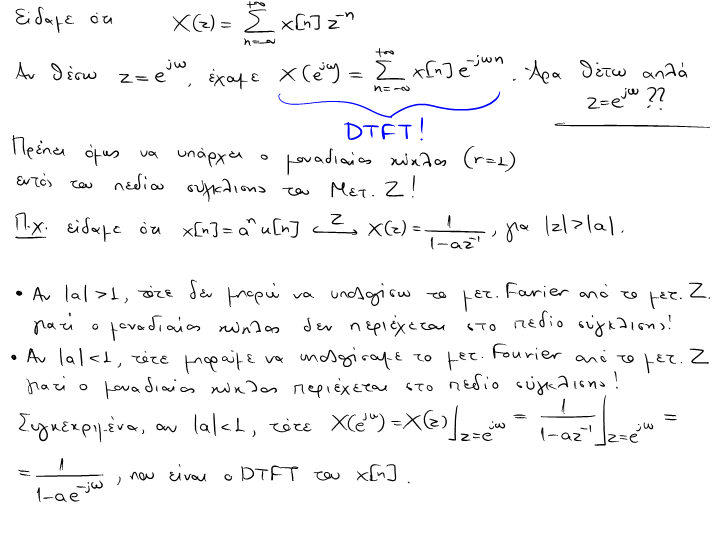 Είδαμε ότι X(z) = \sum_{n=-∞}^{+∞} x[n] z^{-n}
Αν θέσω z = e^{jω}, έχουμε X(e^{jω}) = \sum_{n=-∞}^{+∞} x[n] e^{-jωn}. Άρα θέτω απλά
z = e^{jω} ??
DTFT!
Πρέπει όμως να υπάρχει ο μοναδιαίος κύκλος (r=1)
εντός του πεδίου σύγκλισης του Μετ. Z!
Π.χ. είδαμε ότι x[n] = a^n u[n] \xleftrightarrow{Z} X(z) = \frac{1}{1-az^{-1}}, για |z|>|a|.
• Αν |a|>1, τότε δεν μπορώ να υπολογίσω το μετ. Fourier από το μετ. Z
γιατί ο μοναδιαίος κύκλος δεν περιέχεται στο πεδίο σύγκλισης!
• Αν |a|<1, τότε μπορούμε να υπολογίσουμε το μετ. Fourier από το μετ. Z
γιατί ο μοναδιαίος κύκλος περιέχεται στο πεδίο σύγκλισης!
Συγκεκριμένα, αν |a|<1, τότε X(e^{jω}) = X(z)|_{z=e^{jω}} = \frac{1}{1-az^{-1}}|_{z=e^{jω}} =
= \frac{1}{1-ae^{-jω}}, που είναι ο DTFT του x[n].